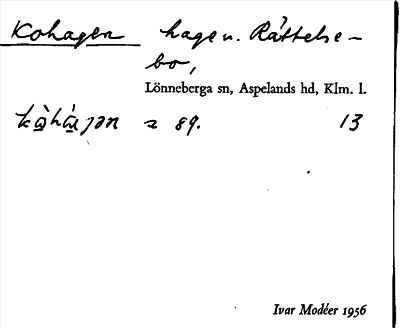 Kohagen hage u. Råttelse-
bo,
Lönneberga sn, Aspelands hd, Klm. l.
89. 13
Ivar Modéer 1956